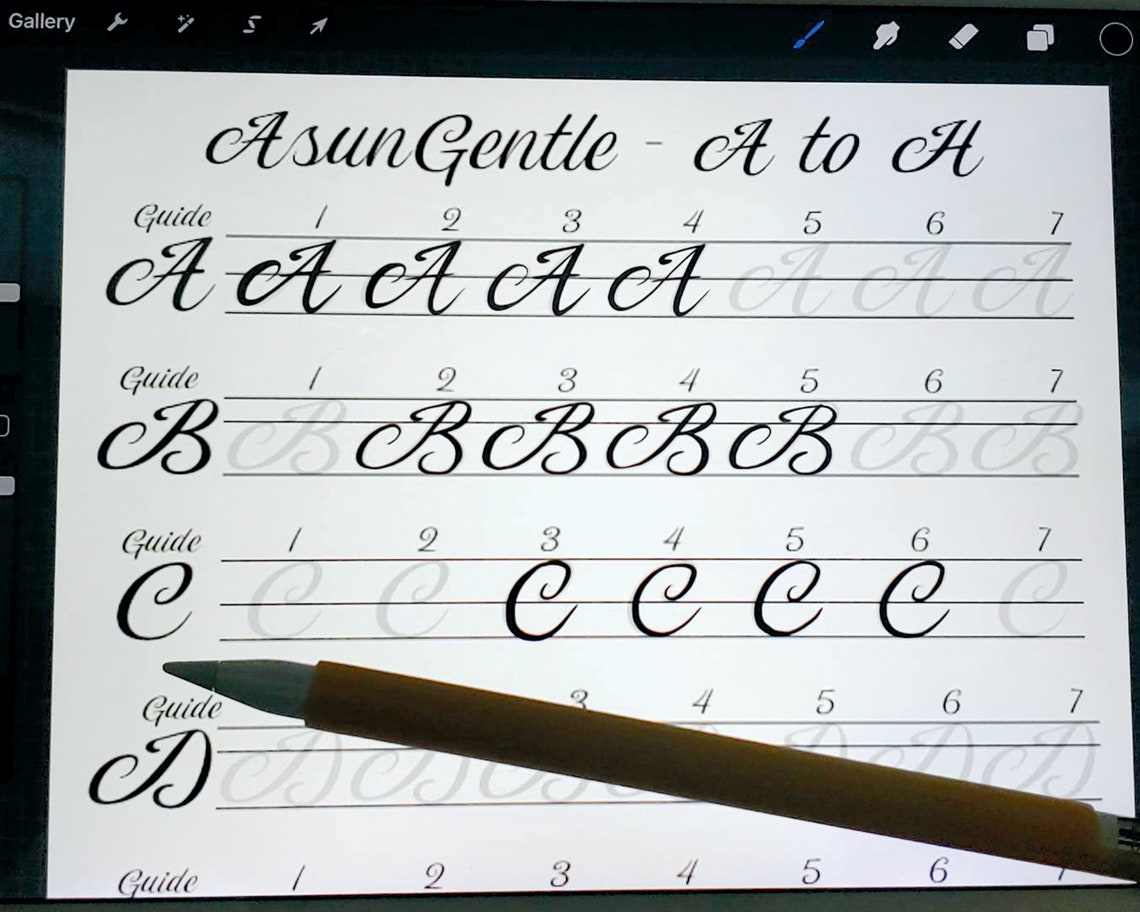 Gallery
AsunGentle - A to H
Guide 1 2 3 4 5 6 7
A A A A A A A A
Guide 1 2 3 4 5 6 7
B B B B B B B B
Guide 1 2 3 4 5 6 7
C C C C C C C C
Guide 3 4 5 6 7
D D D D D D D
Guide 1 2 3 4 5 6